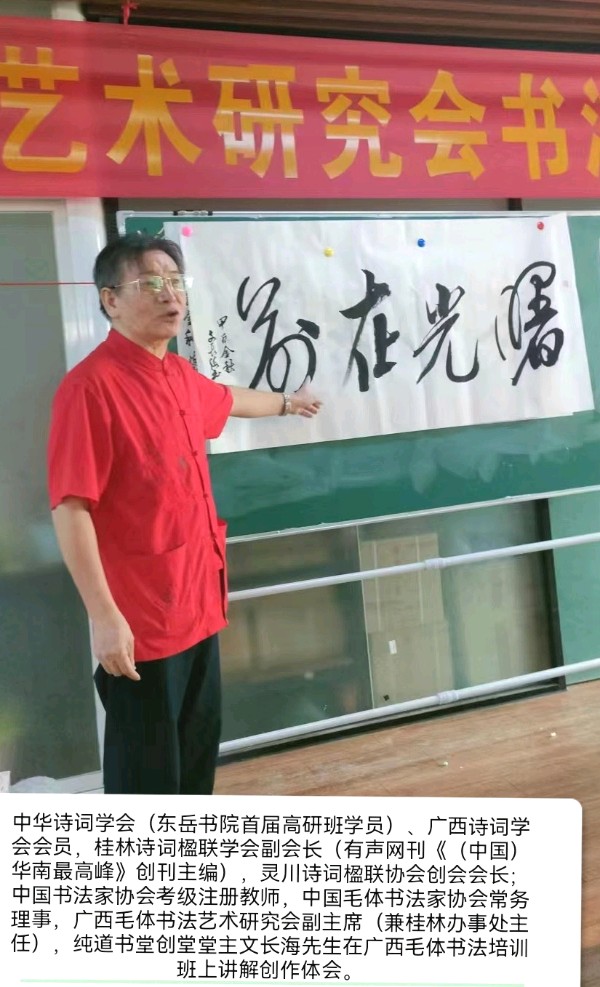 艺术研究会书法
曙光在前
甲辰金秋
文长海书
中华诗词学会（东岳书院首届高研班学员）、广西诗词学
会会员，桂林诗词楹联学会副会长（有声网刊《（中国）
华南最高峰》创刊主编），灵川诗词楹联协会创会会长；
中国书法家协会考级注册教师，中国毛体书法家协会常务
理事，广西毛体书法艺术研究会副主席（兼桂林办事处主
任），纯道书堂创堂堂主文长海先生在广西毛体书法培训
班上讲解创作体会。